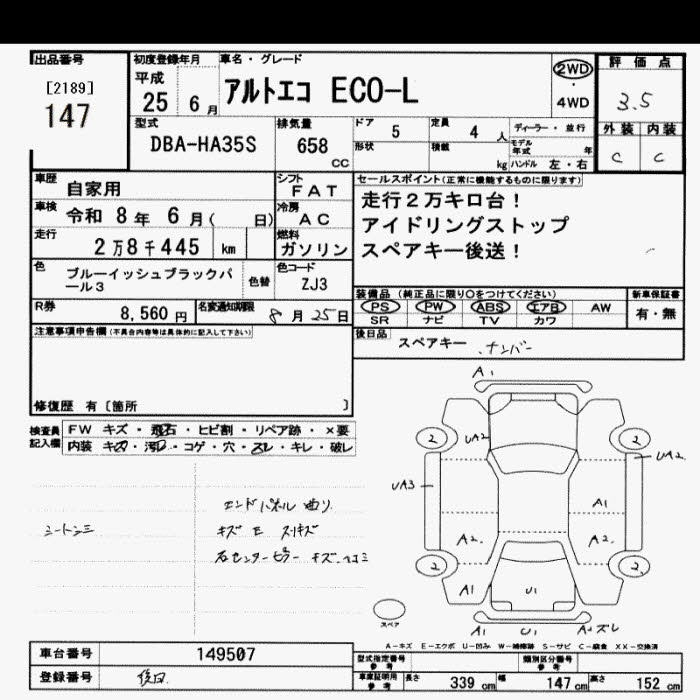 出品番号
[2189]
147
初度登録年月
平成
25 6月
車名・グレード
アルトエコ ECO-L
2WD
・
4WD
評価点
3.5
外装 内装
C C
型式
DBA-HA35S
排気量
658
CC
ドア 5
形状
定員 4 人
積載 kg
ディーラー・並行
モデル年式 年
ハンドル 左・右
車歴 自家用
車検 令和 8年 6月( 日)
走行 2万8千445 km
シフト FAT
冷房 AC
燃料 ガソリン
セールスポイント(正常に機能するものに限ります)
走行2万キロ台!
アイドリングストップ
スペアキー後送!
色 ブルーイッシュブラックパール3
色替
色コード ZJ3
R券 8,560 円
名変通知期限 8月25日
装備品 (純正品に限り○をつけてください)
PS PW ABS エアB AW
SR ナビ TV カワ
新車保証書
有・無
後日品 スペアキー 、ナンバー
注意事項申告欄 (不具合内容等は具体的に記入して下さい)
修復歴 有〔箇所 〕
検査員記入欄
FW キズ・飛石・ヒビ割・リペア跡・×要
内装 キズ・汚レ・コゲ・穴・スレ・キレ・破レ
シートシミ
エンドパネル 曲リ
キズ E スリキズ
右センターピラー キズ、ヘコミ
A1
2 UA2 2
UA2
UA3
A1
A2 A2
2 2
A1 U1
A1 U1 A2 ズレ
スペア
A-キズ E-エクボ U-凹み W-補修跡 S-サビ C-腐食 XX-交換済
車台番号 149507
登録番号 後日
型式指定番号 参考
類別区分番号 参考
車庫証明用 参考 長さ 339 cm 幅 147 cm 高さ 152 cm